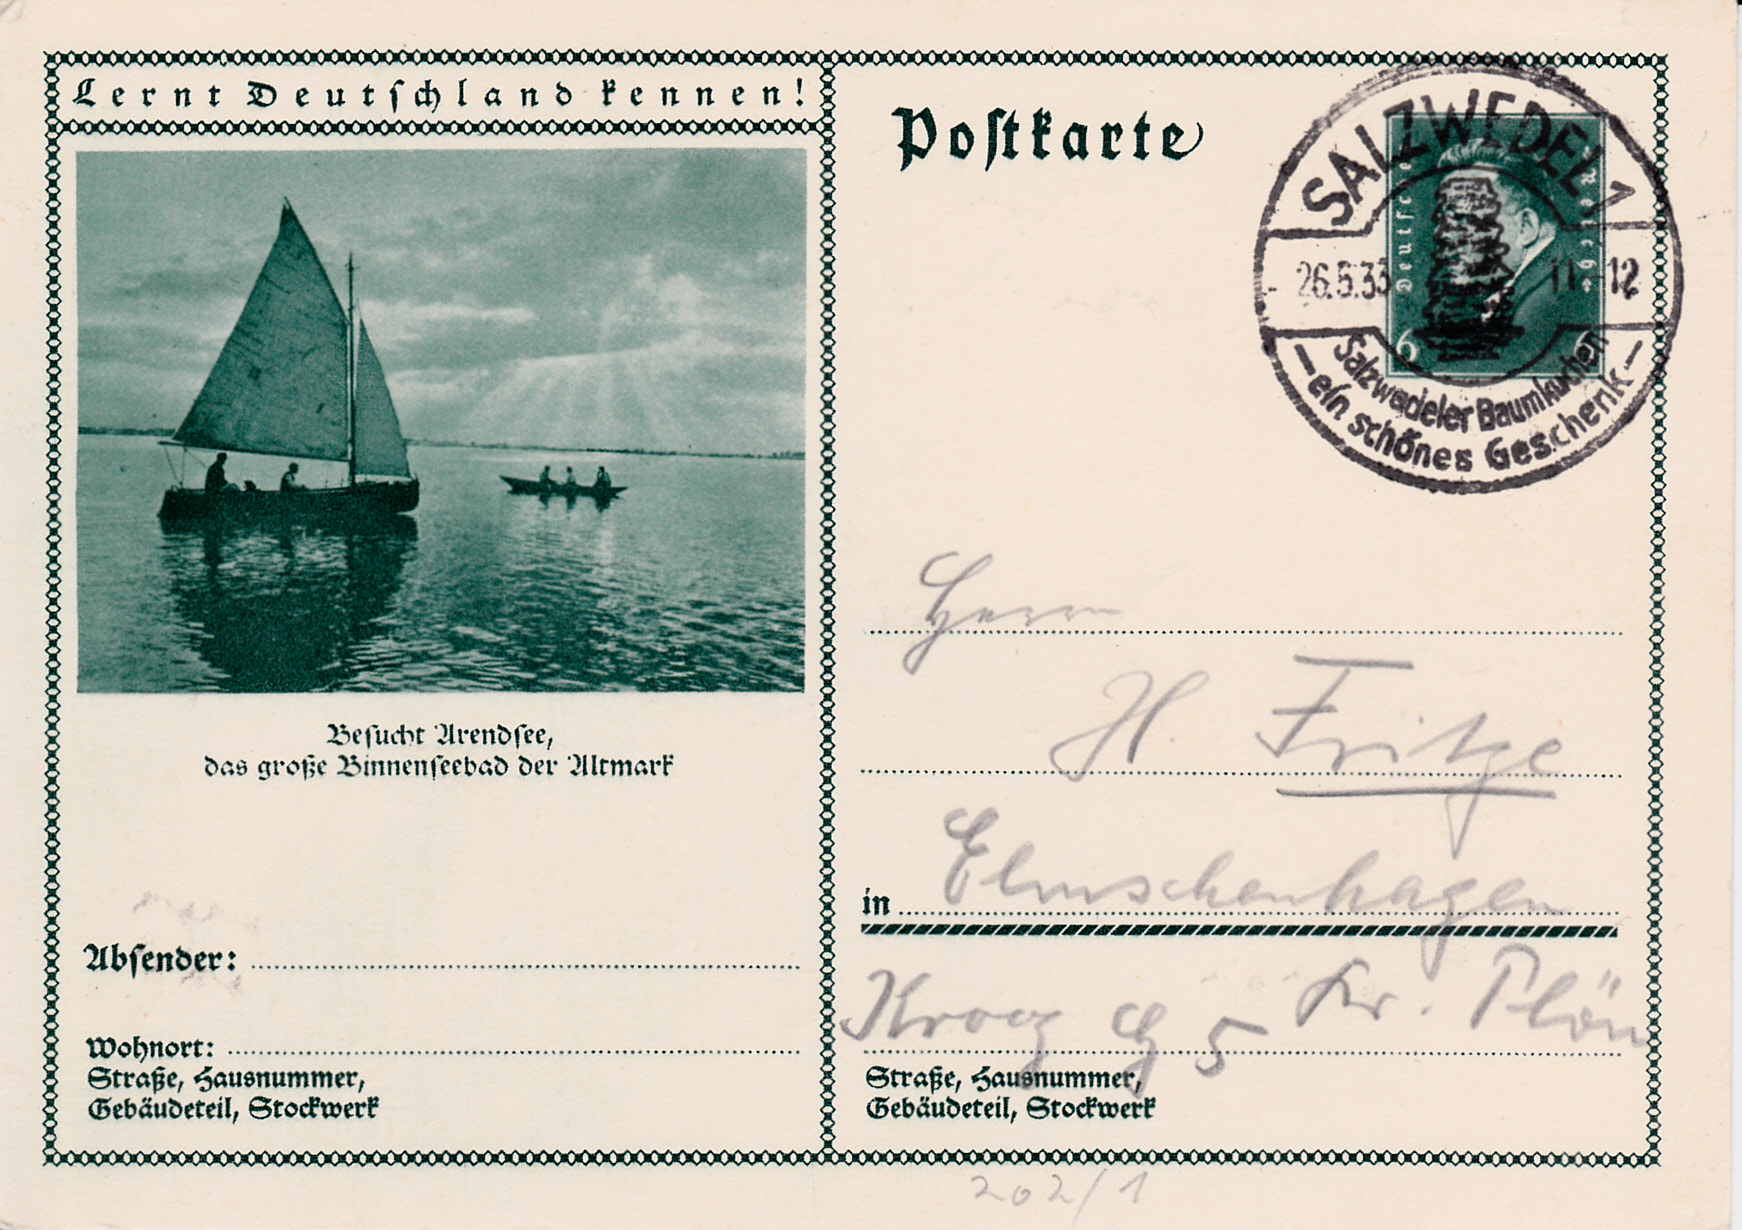 Lernt Deutschland kennen!
Besucht Arendsee,
das große Binnenseebad der Altmark
Absender:
Wohnort:
Straße, Hausnummer,
Gebäudeteil, Stockwerk
Postkarte
SALZWEDEL 1
26.5.33 11-12
Salzwedeler Baumkuchen
- ein schönes Geschenk -
Deutsches Reich
6 6
Herrn
H. Fritze
in Elmschenhagen
Kroog 5 Kr. Plön
Straße, Hausnummer,
Gebäudeteil, Stockwerk
202/1